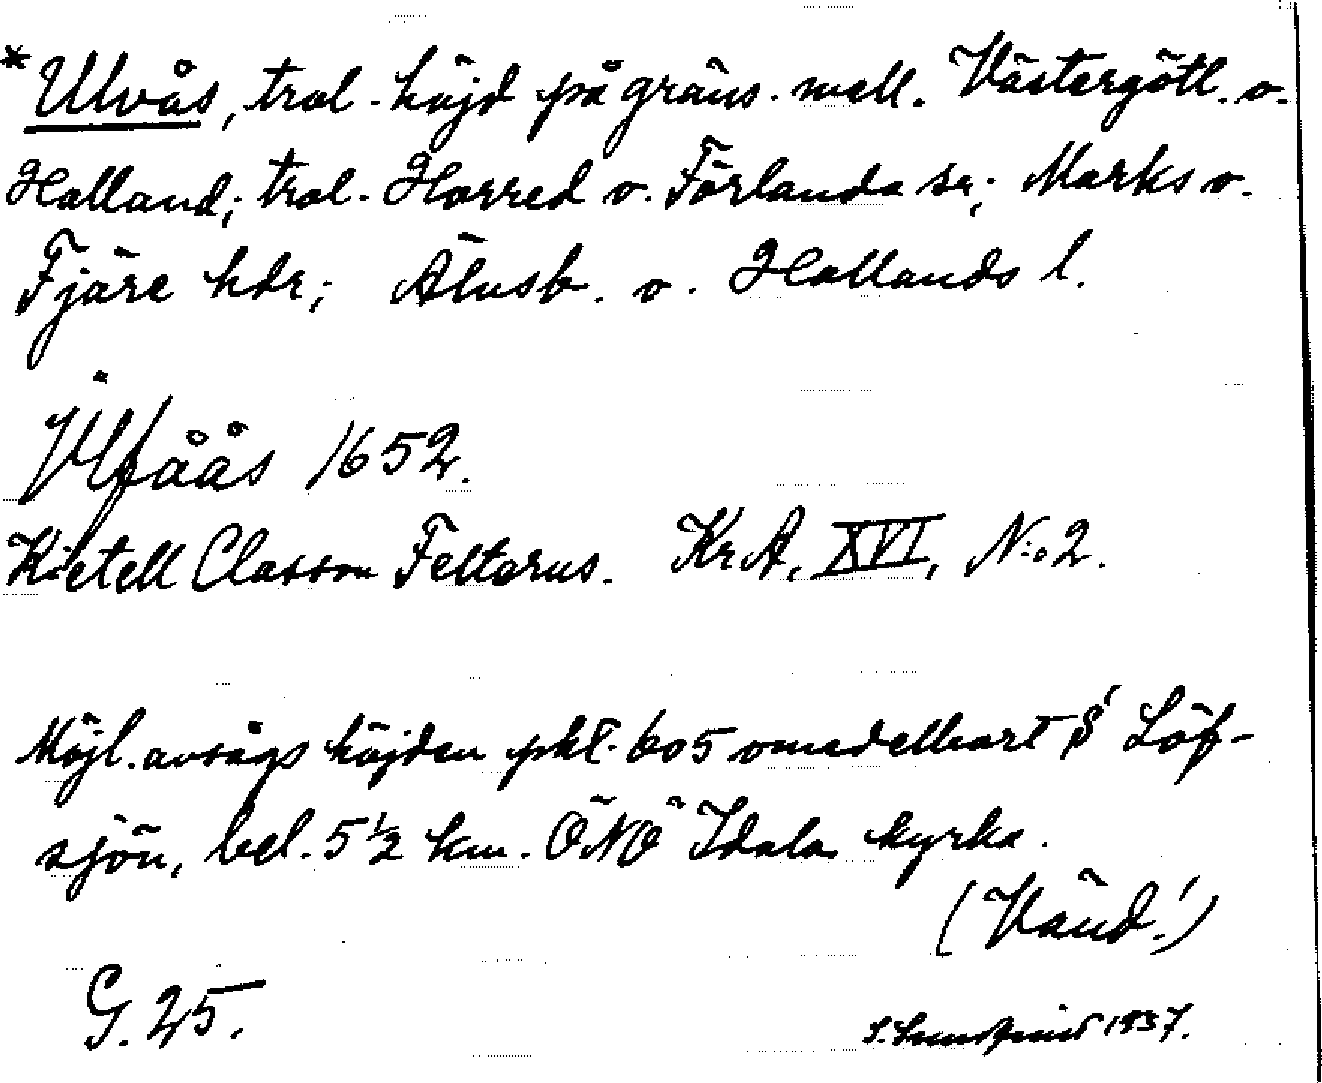 *Ulvås, trol. höjd på gräns. mell. Västergötl. o.
Halland; trol. Horred o. Förlanda sn; Marks o.
Fjäre hdr; Älvsb. o. Hallands l.
Ulfåås 1652.
Kietell Classon Felterus. KrA, XVI, N:o 2.
Möjl. avsågs höjden pkt. 605 omedelbart S' Löf-
sjön, bel. 5 1/2 km. ÖNÖ Idala kyrka.
(Vänd!)
G. 25.
1937.